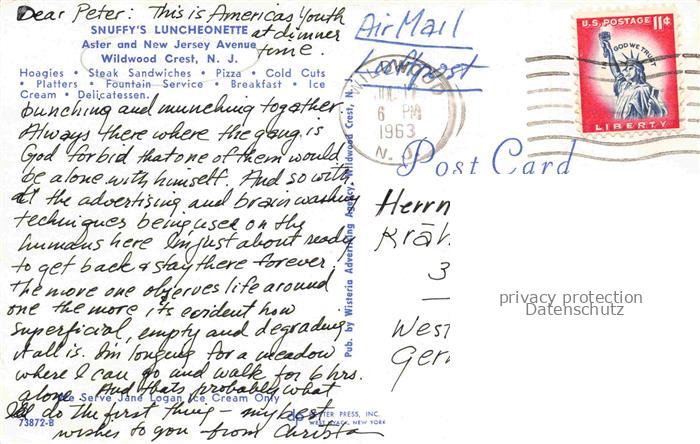 Dear Peter: This is Americas Youth
at dinner
time.
SNUFFY'S LUNCHEONETTE
Aster and New Jersey Avenue
Wildwood Crest, N. J.
Hoagies • Steak Sandwiches • Pizza • Cold Cuts
• Platters • Fountain Service • Breakfast • Ice
Cream • Delicatessen.
bunching and munching together.
Always there where the gang is
God forbid that one of them would
be alone with himself. And so with
all the advertising and brain washing
techniques being used on the
humans here Im just about ready
to get back & stay there forever.
The more one observes life around
one the more its evident how
superficial, empty and degrading
it all is. Im longing for a meadow
where I can go and walk for 6 hrs.
alone. And thats probably what
We Serve Jane Logan Ice Cream Only
I'll do the first thing – my best
wishes to you – from Christa
73872-B
Pub. by Wisteria Advertising Agency, Wildwood Crest, N. J.
DEXTER PRESS, INC.
WEST NYACK, NEW YORK
Air Mail
Luftpost
WILDWOOD
6 PM
1963
N. J.
U.S. POSTAGE 11¢
IN GOD WE TRUST
LIBERTY
Post Card
Herrn
Kräh
3
West
Ger
privacy protection
Datenschutz